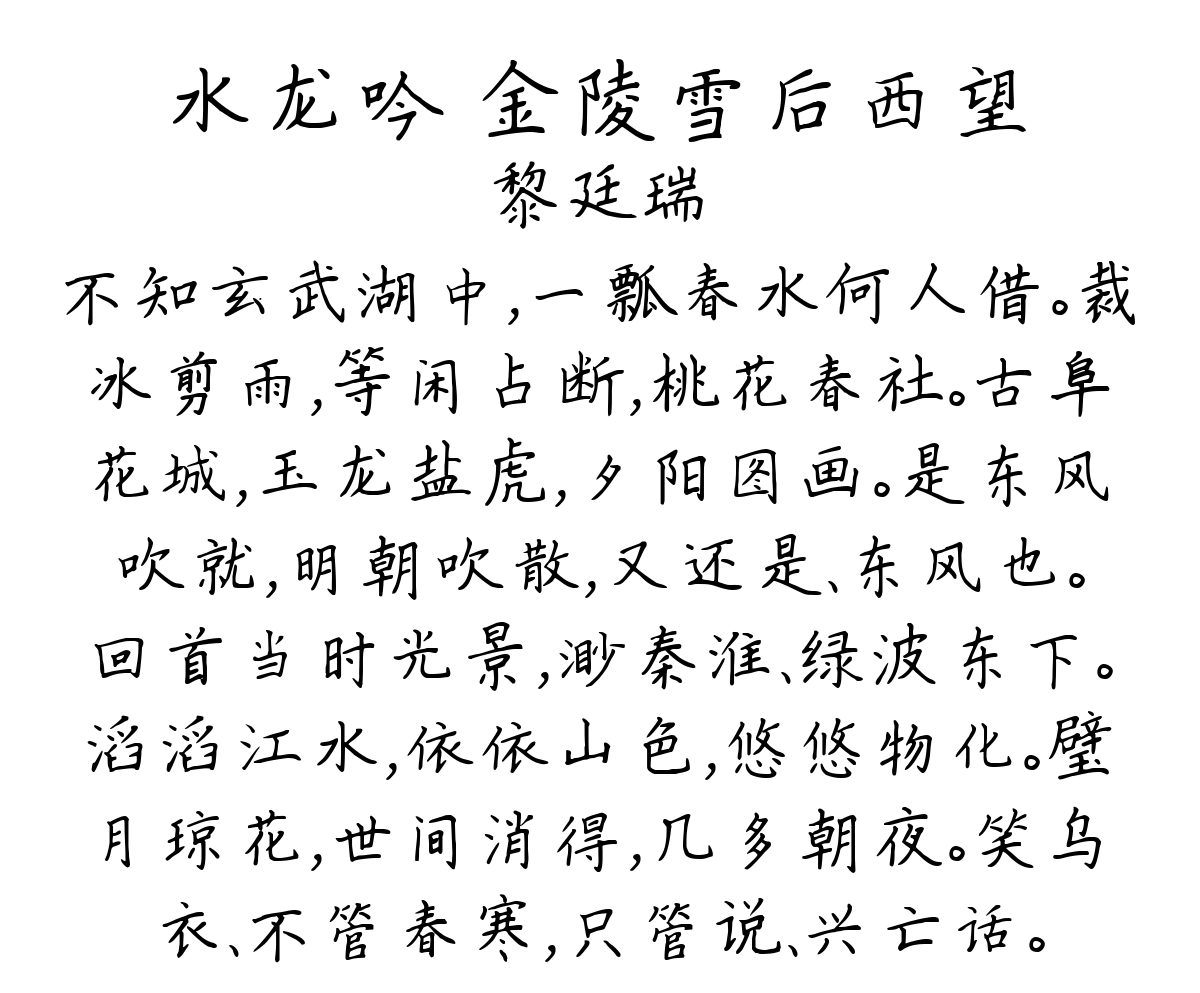 水龙吟 金陵雪后西望
黎廷瑞
不知玄武湖中,一瓢春水何人借。裁
冰剪雨,等闲占断,桃花春社。古阜
花城,玉龙盐虎,夕阳图画。是东风
吹就,明朝吹散,又还是、东风也。
回首当时光景,渺秦淮、绿波东下。
滔滔江水,依依山色,悠悠物化。璧
月琼花,世间消得,几多朝夜。笑乌
衣、不管春寒,只管说、兴亡话。